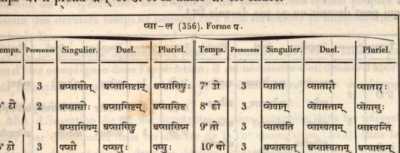 प्सा–ल (356). Forme प.
Temps. Personnes Singulier. Duel. Pluriel. Temps. Personnes Singulier. Duel. Pluriel.
3 अप्सासीत् अप्सासिष्टाम् अप्सासिषुः 7ᵉ टी 3 प्साता प्सातारौ प्सातारः
टी 2 अप्सासीः अप्सासिष्टम् अप्सासिष्ट 8ᵉ टी 3 प्सेयात् प्सेयास्ताम् प्सेयासुः
1 अप्सासिषम् अप्सासिष्व अप्सासिष्म 9ᵉ ती 3 प्सास्यति प्सास्यतः प्सास्यन्ति
टी 3 पप्सौ पप्सतुः पप्सुः 10ᵉ थी 3 अप्सास्यत् अप्सास्यताम् अप्सास्यन्